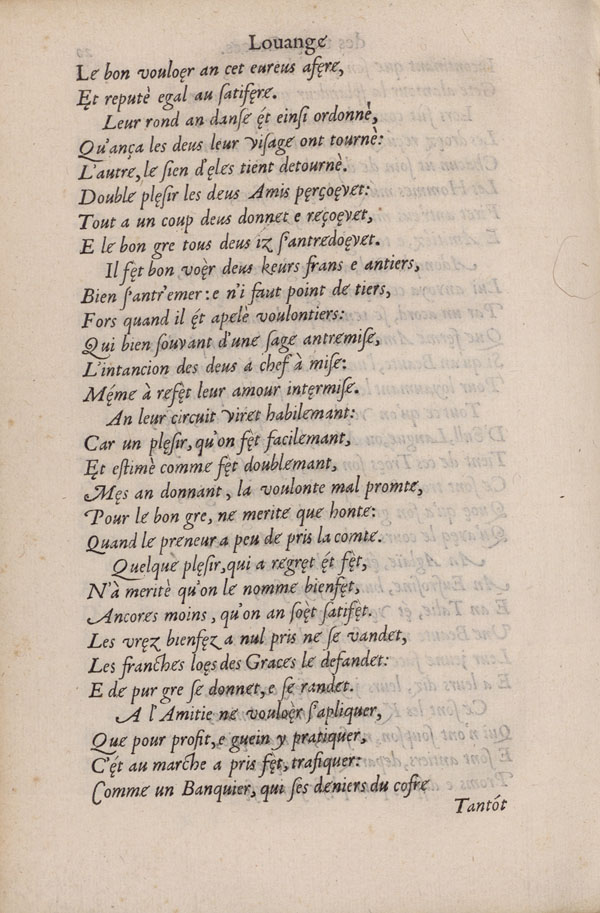 Louange
Le bon vouloęr an cet eureus afęre,
Ęt reputè egal au satifęre.
Leur rond an danſe ę́t einſi ordonnè,
Qu'ança les deus leur viſage ont tournè:
L'autre, le ſien d'ęles tient detournè.
Double plęſir les deus Amis pęrçoęvet:
Tout a un coup deus donnet e reçoęvet,
E le bon gre tous deus iz ſ'antredoęvet.
Il fęt bon voęr deus keurs frans e antiers,
Bien ſ'antr'emer: e n'i faut point de tiers,
Fors quand il ę́t apelè voulontiers:
Qui bien ſouvant d'une ſage antremiſe,
L'intancion des deus a chef à miſe:
Męme à refęt leur amour intęrmiſe.
An leur circuit viret habilemant:
Car un plęſir, qu'on fęt facilemant,
Ęt eſtimè comme fęt doublemant,
Męs an donnant, la voulonte mal promte,
Pour le bon gre, ne merite que honte:
Quand le preneur a peu de pris la comte.
Quelque plęſir, qui a regręt ę́t fęt,
N'à meritè qu'on le nomme bienfęt,
Ancores moins, qu'on an ſoęt ſatifęt.
Les vręz bienfęz a nul pris ne ſe vandet,
Les franches loęs des Graces le defandet:
E de pur gre ſe donnet, e ſe randet.
A l'Amitie ne vouloęr ſ'apliquer,
Que pour profit, e guein y pratiquer,
C'ę́t au marche a pris fęt, trafiquer:
Comme un Banquier, qui ſes deniers du cofre
Tantót